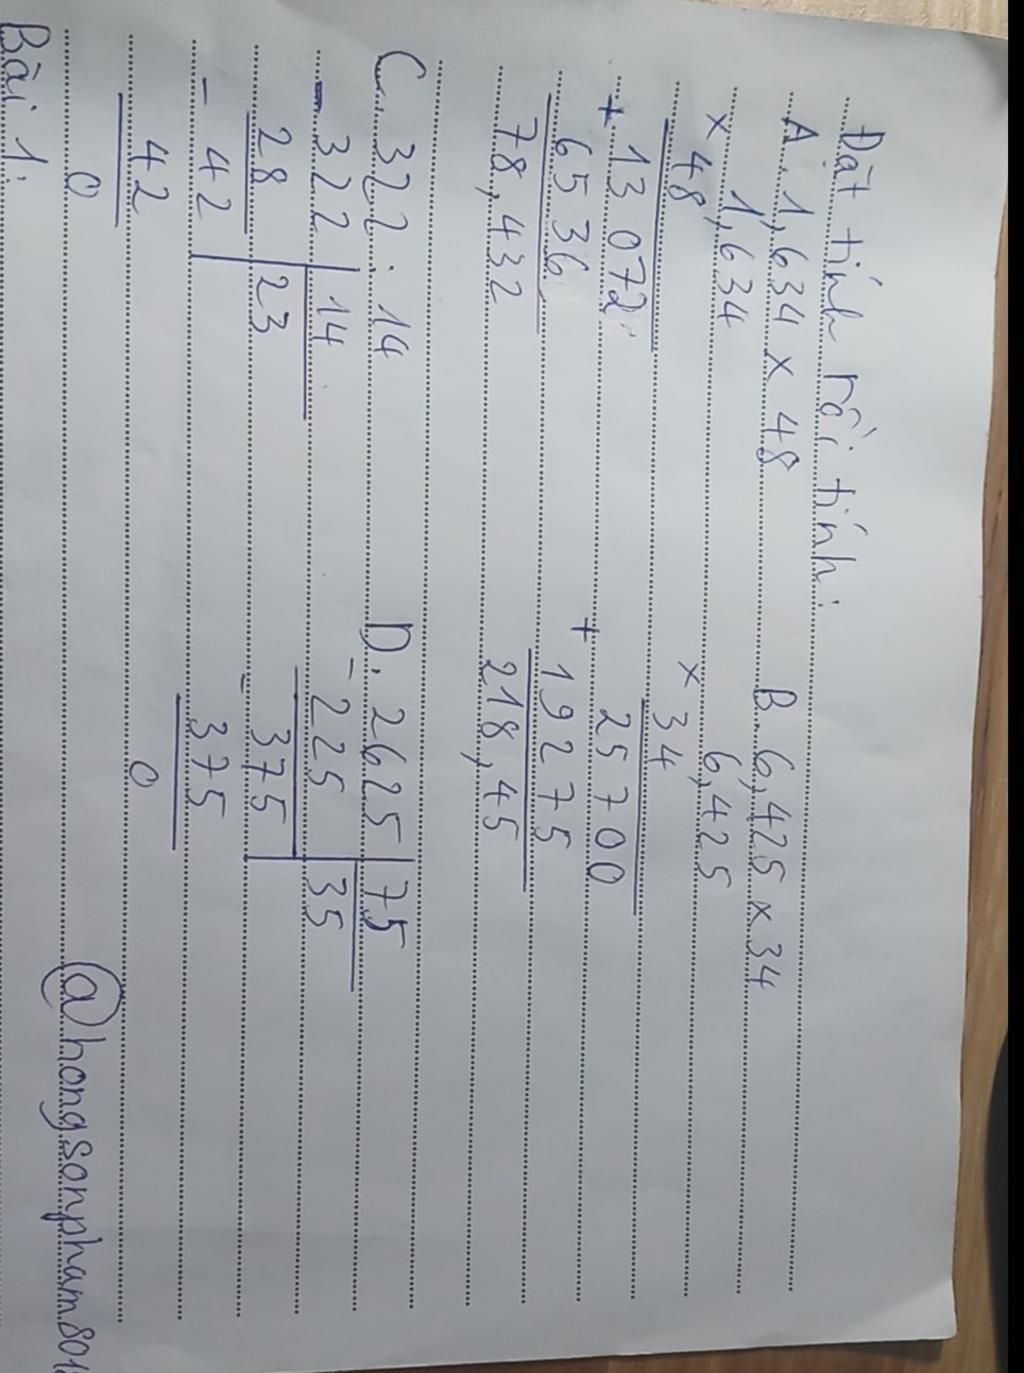 Đặt tính rồi tính:
A. 1,634 x 48 B. 6,425 x 34
x 1,634 6,425
48 x 34
+ 13 072 25 700
6536 + 19275
78,432 218,45
C. 322 : 14 D. 2625 75
- 322 14 - 225 35
28 23 - 375
- 42 375
42 0
0
@hongsonpham.801
Bài 1: